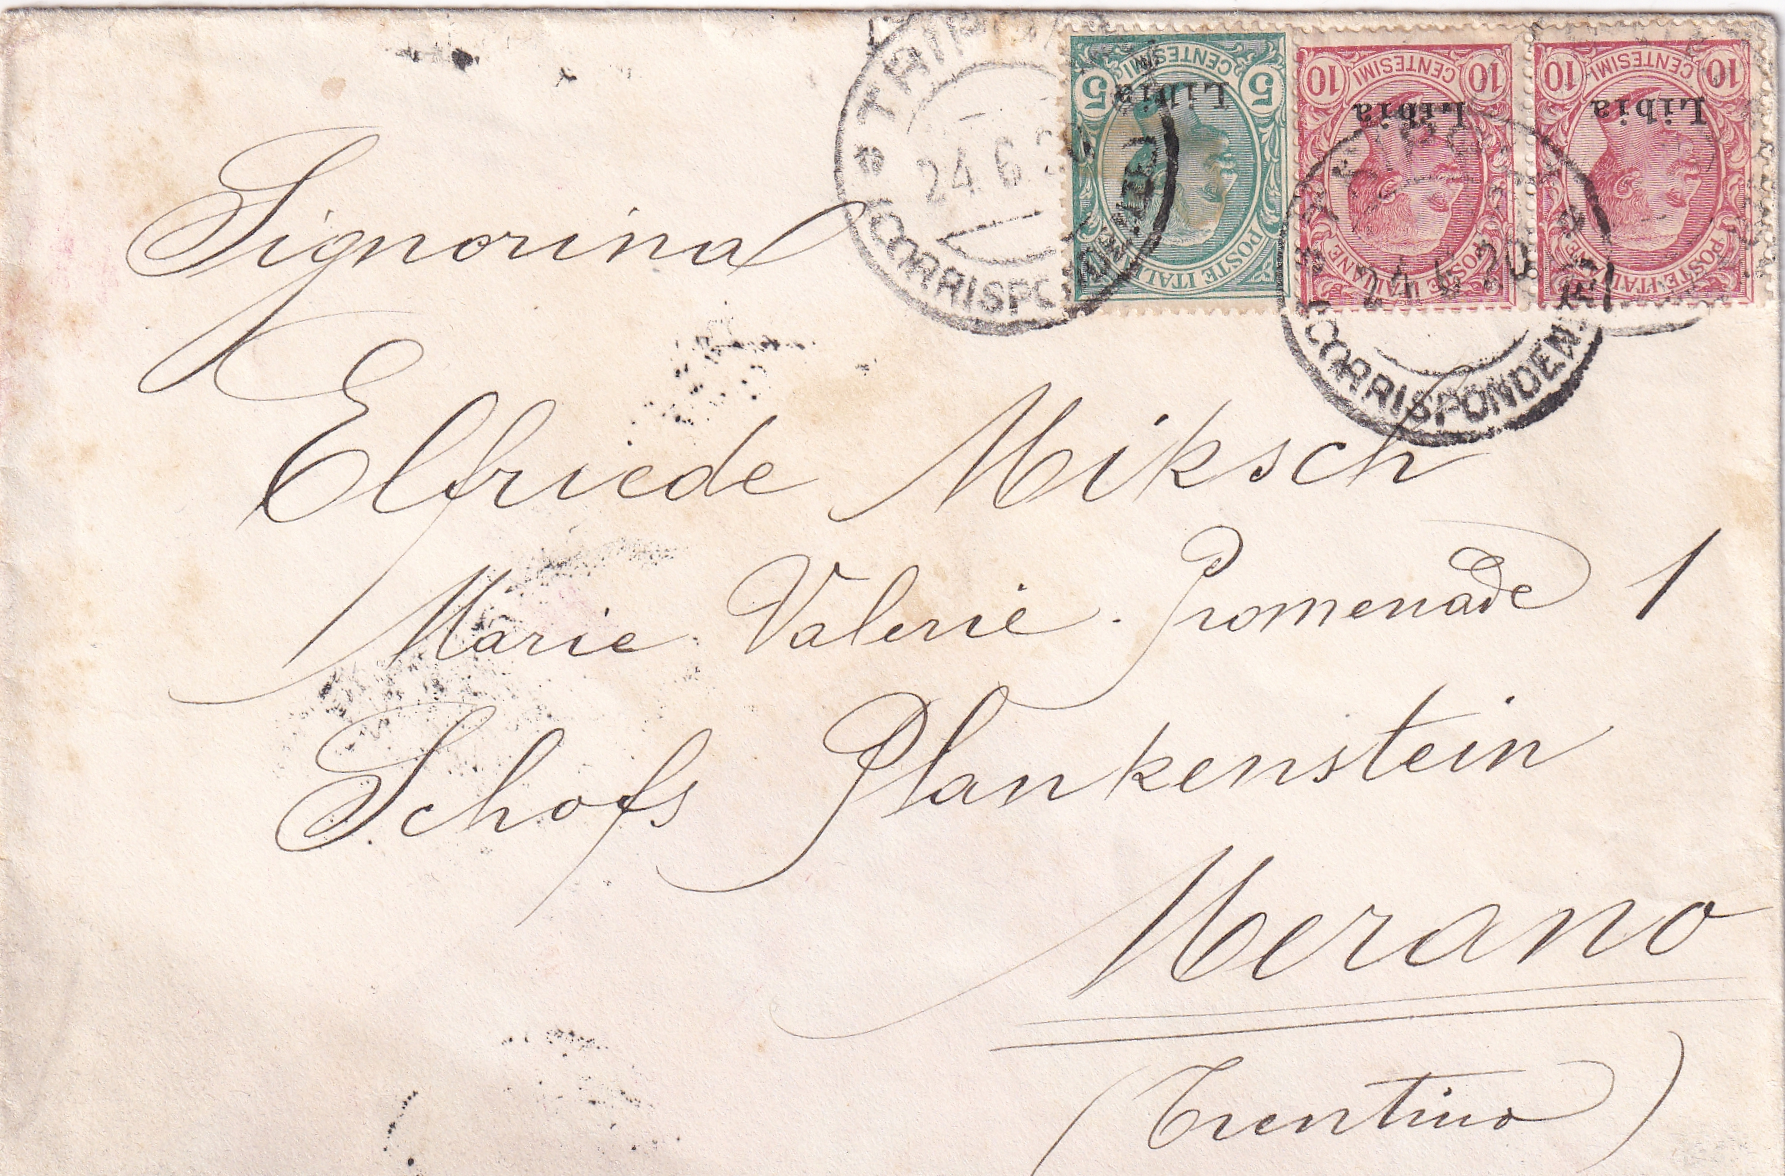 TRIPOLI
24.6.20
CORRISPONDENZE
5 CENTESIMI 5
Libia
POSTE ITALIANE
10 CENTESIMI 10
Libia
POSTE ITALIANE
10 CENTESIMI 10
Libia
POSTE ITALIANE
24.6.20
CORRISPONDENZE
Signorina
Elfriede Miksch
Marie Valerie. Promenade 1
Schofs Plankenstein
Merano
(Trentino)